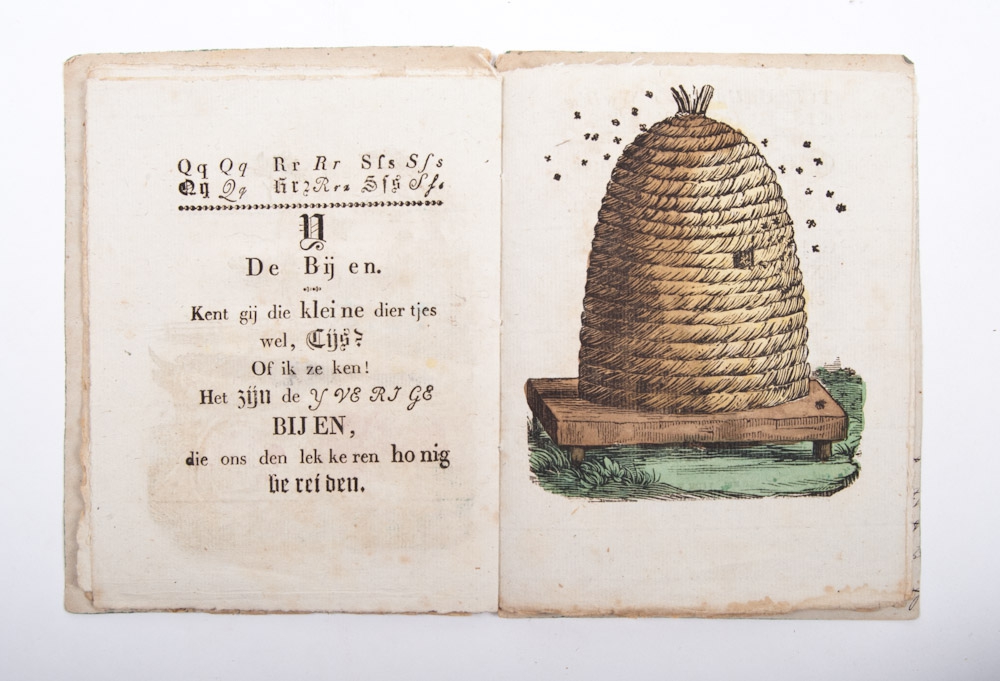 Qq Qq Rr Rr Sſs Sſs
Qq Qq Rrꝛ Rrꝛ Sſs Sſs
Y
De Bij en.
Kent gij die klei ne dier tjes
wel, Cijs?
Of ik ze ken!
Het zijn de YVE RI GE
BIJ EN,
die ons den lek ke ren ho nig
be rei den.